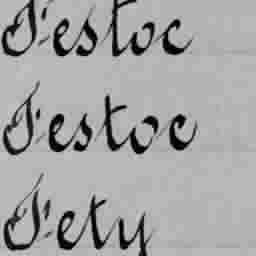 Festoc
Festoc
Fety